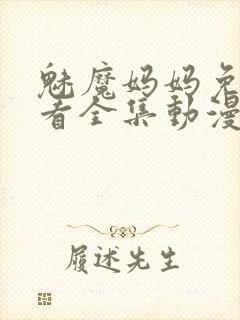 魅魔妈妈免
看全集動漫
履述先生